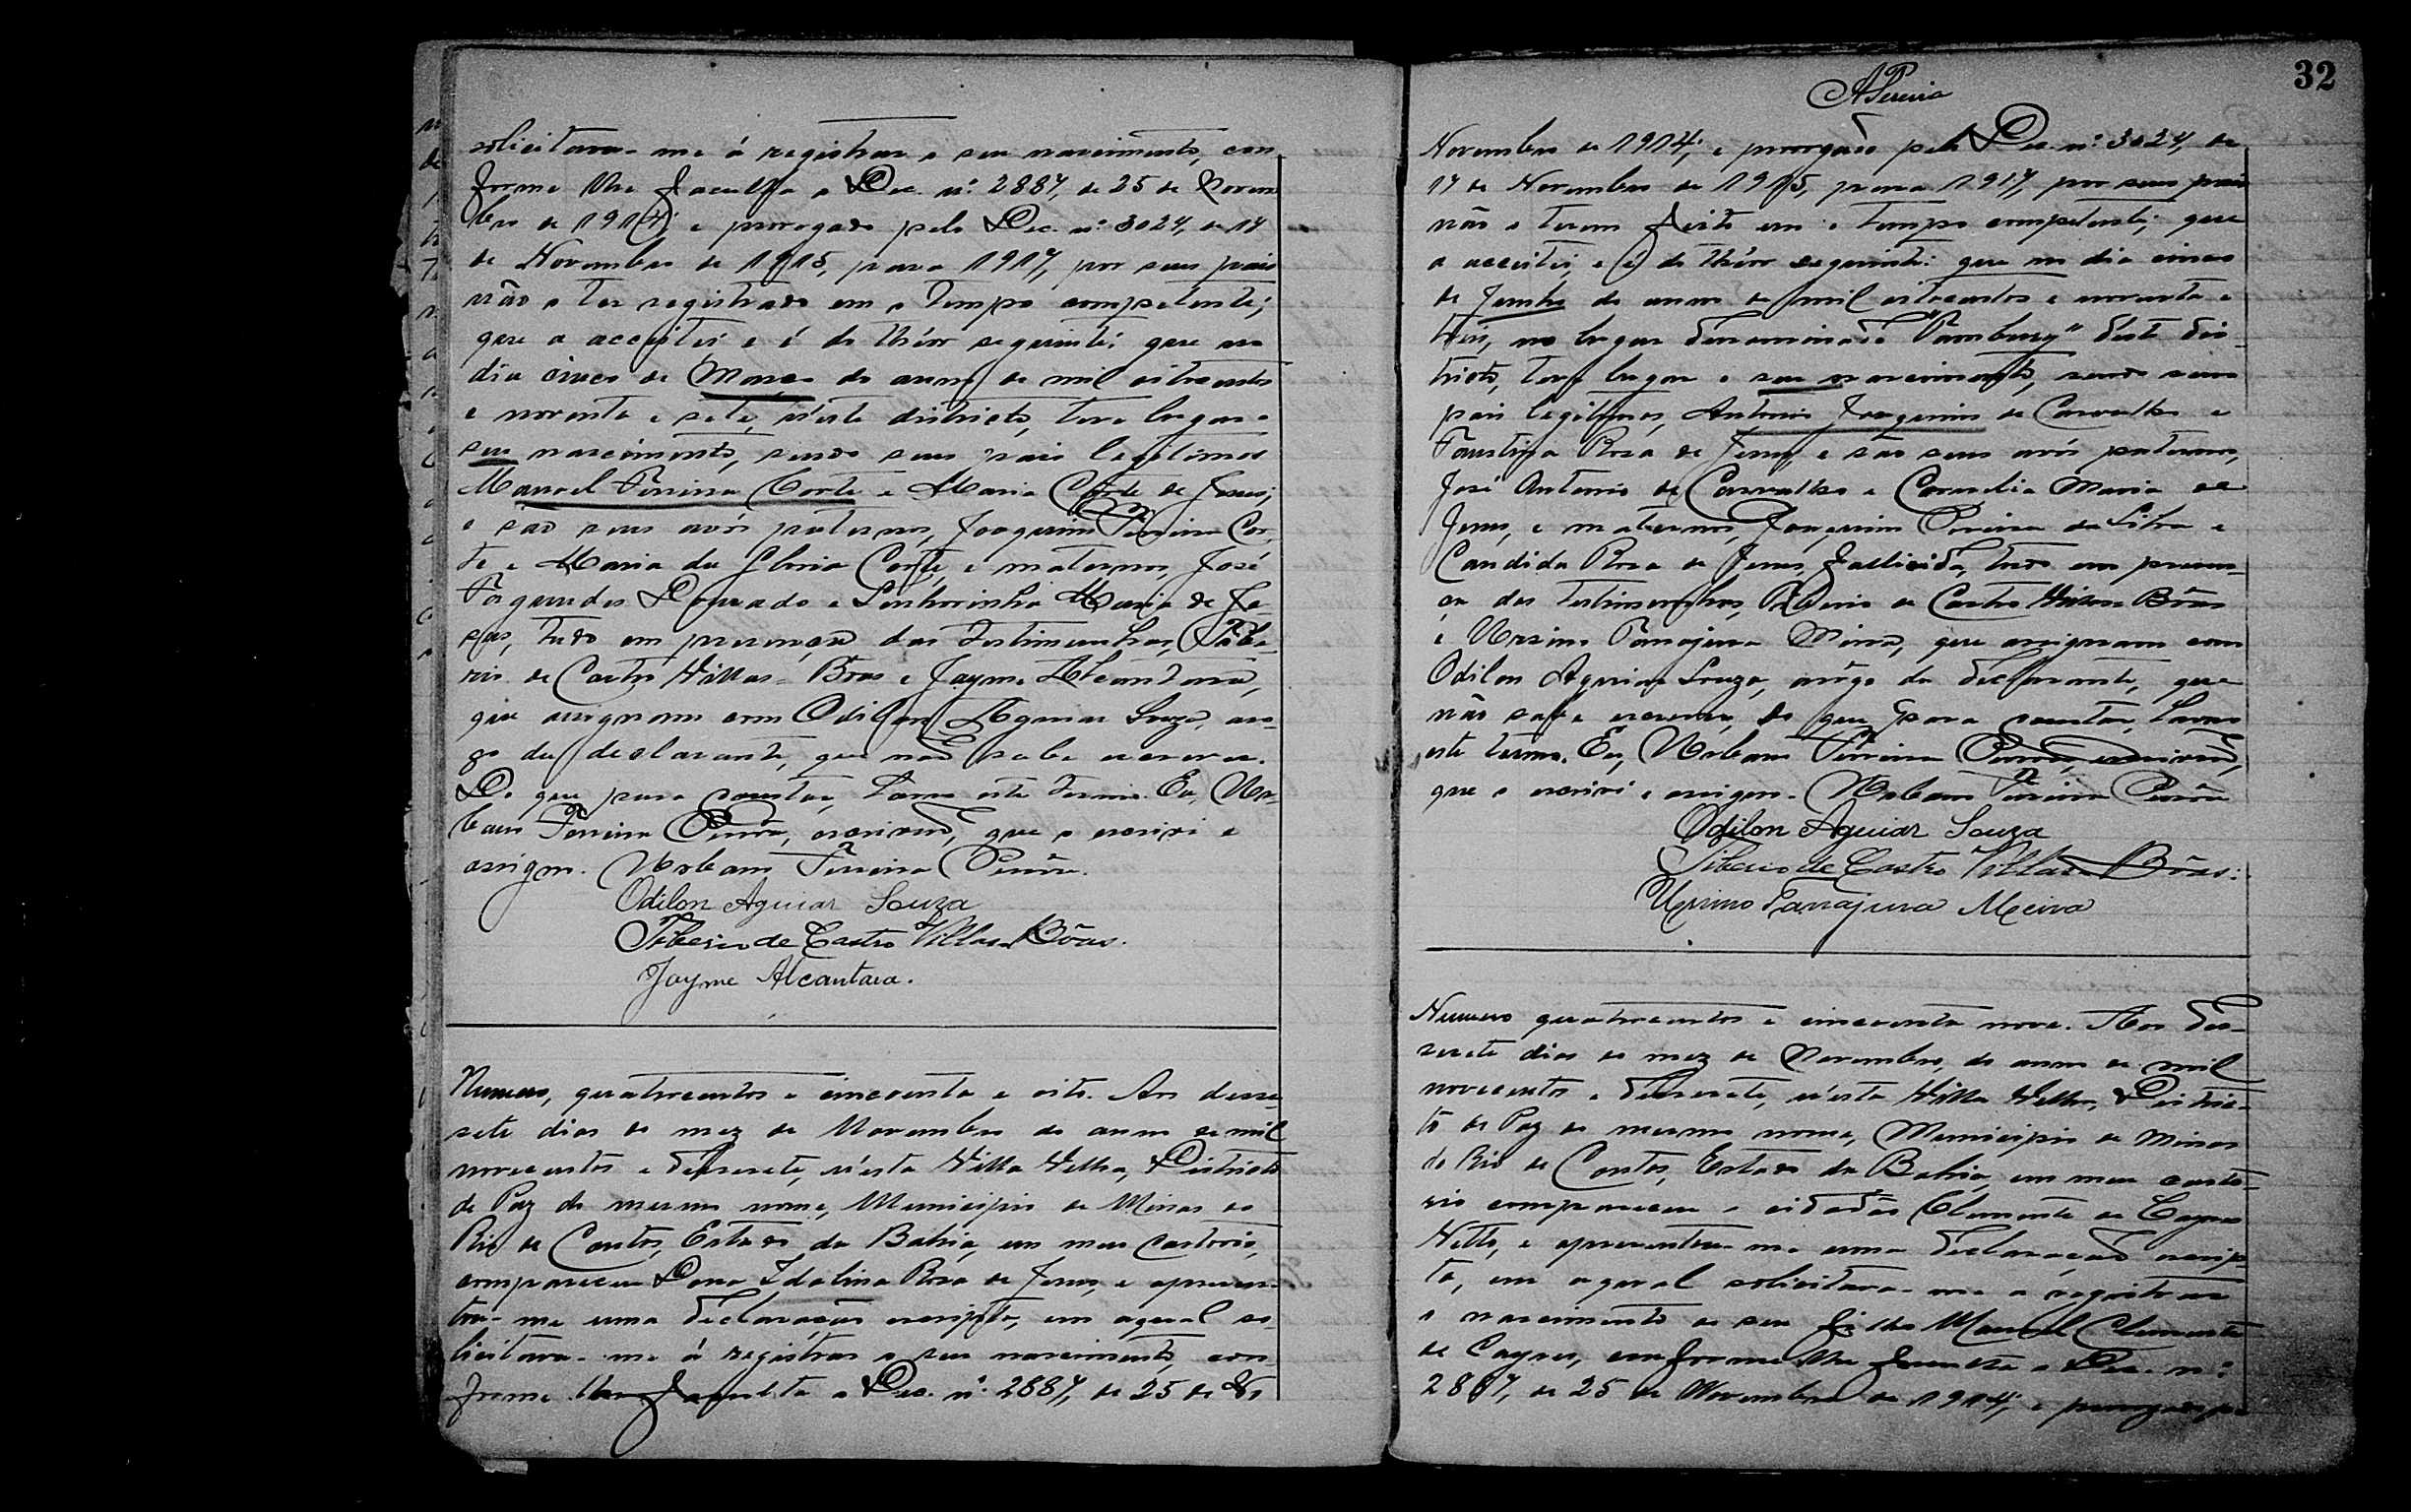 solicitava-me á registrar o seu nascimento, con
forme lhe faculta o Dec. nº 2887, de 25 de Novem
bro de 1914; e prorogado pelo Dec. nº 3024, de 17
de Novembro de 1915, para 1917, por seus pais
não o ter registrado em o tempo competente;
que a acceitei e é do theor seguinte: que no
dia cinco de Março do anno de mil oitocentos
e noventa e sete, n'este districto, teve lugar o
seu nascimento, sendo seus pais legitimos
Manoel Ferreira Corte e Maria Corte de Jesus;
e são seus avós paternos, Joaquim Ferreira Cor-
te e Maria da Gloria Corte, e maternos, José
Fagundes Dourado e Senhorinha Maria de Je-
sus, tudo em presença das testimunhas, Tibe-
rio de Castro Villas-Boas e Jayme Alcantara,
que assignam com Odilon Aguiar Souza, aro-
go da declarante, que não sabe escrever.
Do que para constar, lavro este termo. Eu, Ur-
bano Ferreira Pereira, escrivão, que o escrivi e
assigno. Urbano Ferreira Pereira.
Odilon Aguiar Souza
Tiberio de Castro Villas Bôas.
Jayme Alcantara.
Numero, quatrocentos e cincoenta e oito. Aos desse-
sete dias do mez de Novembro do anno de mil
novecentos e dessesete, n'esta Villa Velha, Districto
de Paz do mesmo nome, Municipio de Minas do
Rio de Contas, Estado da Bahia, em meu Cartorio,
compareceu Dona Idalina Rosa de Jesus, e apresen-
tou-me uma declaração escripta, em a qual so-
licitava-me á registrar o seu nascimento, con
forme lhe faculta o Dec. nº 2887, de 25 de No
32
APereira
Novembro de 1914; e prorogado pelo Dec. nº 3024, de
17 de Novembro de 1915, para 1917, por seus pais
não o terem feito em o tempo competente; que
a acceitei, e é do theor seguinte: que no dia cinco
de Junho do anno de mil oitocentos e noventa e
tres, no lugar denominado "Tambury" deste dis-
tricto, teve lugar o seu nascimento, sendo seus
pais legitimos, Antonio Joaquim de Carvalho e
Faustina Rosa de Jesus, e são seus avós paternos,
José Antonio de Carvalho e Cornelia Maria de
Jesus, e maternos, Joaquim Pereira da Silva e
Candida Rosa de Jesus, fallecida, tudo em presen-
ça das testimunhas, Tiberio de Castro Villas Bôas
e Ursino Tanajura Meira, que assignam com
Odilon Aguiar Souza, arôgo da declarante, que
não sabe escrever, do que para constar, lavro
este termo. Eu, Urbano Ferreira Pereira, escrivão,
que o escrivi e assigno. Urbano Ferreira Pereira
Odilon Aguiar Souza
Tiberio de Castro Villas Bôas.
Ursino Tanajura Meira
Numero quatrocentos e cincoenta nove. Aos des-
sesete dias do mez de Novembro, do anno de mil
novecentos e dessesete, n'esta Villa Velha, Distric-
to de Paz do mesmo nome, Municipio de Minas
do Rio de Contas, Estado da Bahia, em meu carto-
rio compareceu o cidadão Clemente de Cayres
Netto, e apresentou-me uma declaração escrip-
ta, em a qual solicitava-me a registrar
o nascimento de seu filho Manoel Clemente
de Cayres, conforme lhe faculta o Dec. nº
2887, de 25 de Novembro de 1914, e prorogado pe